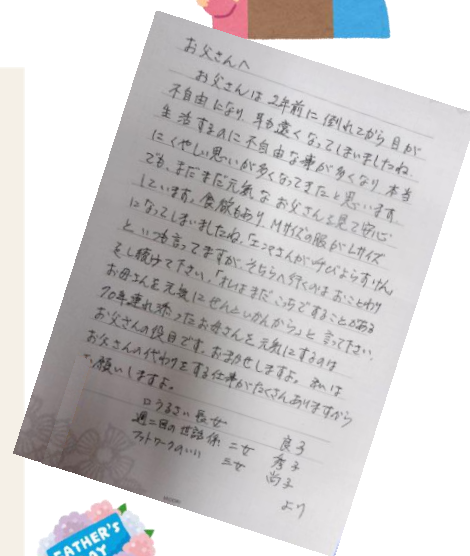 お父さんへ
お父さんは2年前に倒れてから目が
不自由になり、耳も遠くなってしまいましたね。
生活するのに不自由な事が多くなり、本当
にくやしい思いが多くなってきたと思います。
でも、まだまだ元気なお父さんを見て安心
しています。食欲もあり、Mサイズの服がLサイズ
になってしまいましたね。「エンマさんが呼びよらすけん」
といつも言ってますが、そちらへ行くのはおことわり
をし続けて下さい。「おれはまだこっちですることがある
お母さんを元気にせんといかんから。」と言って下さい。
70年連れ添ったお母さんを元気にするのは
お父さんの役目です。おまかせしますよ。私は
お父さんの代わりをする仕事がたくさんありますから
お願いしますよ。
口うるさい長女 良子
週二回の世話係 二女 秀子
フットワークのいい 三女 尚子
より
FATHER'S
DAY